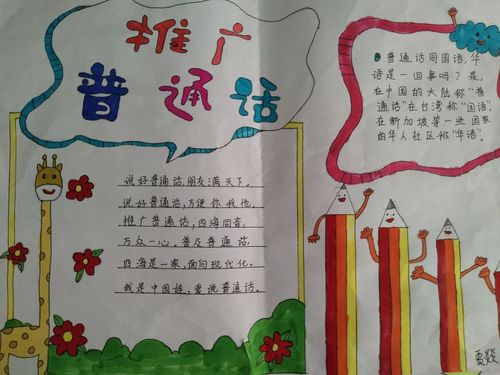 推广
普通话
说好普通话,朋友满天下。
说好普通话,方便你我他。
推广普通话,四海同音,
万众一心。普及普通话
四海是一家,面向现代化。
我是中国娃,爱说普通话。
普通话同国语,华
语是一回事吗?是,
在中国的大陆称“普
通话”在台湾称“国语”
在新加坡等一些国家
的华人社区称“华语”。